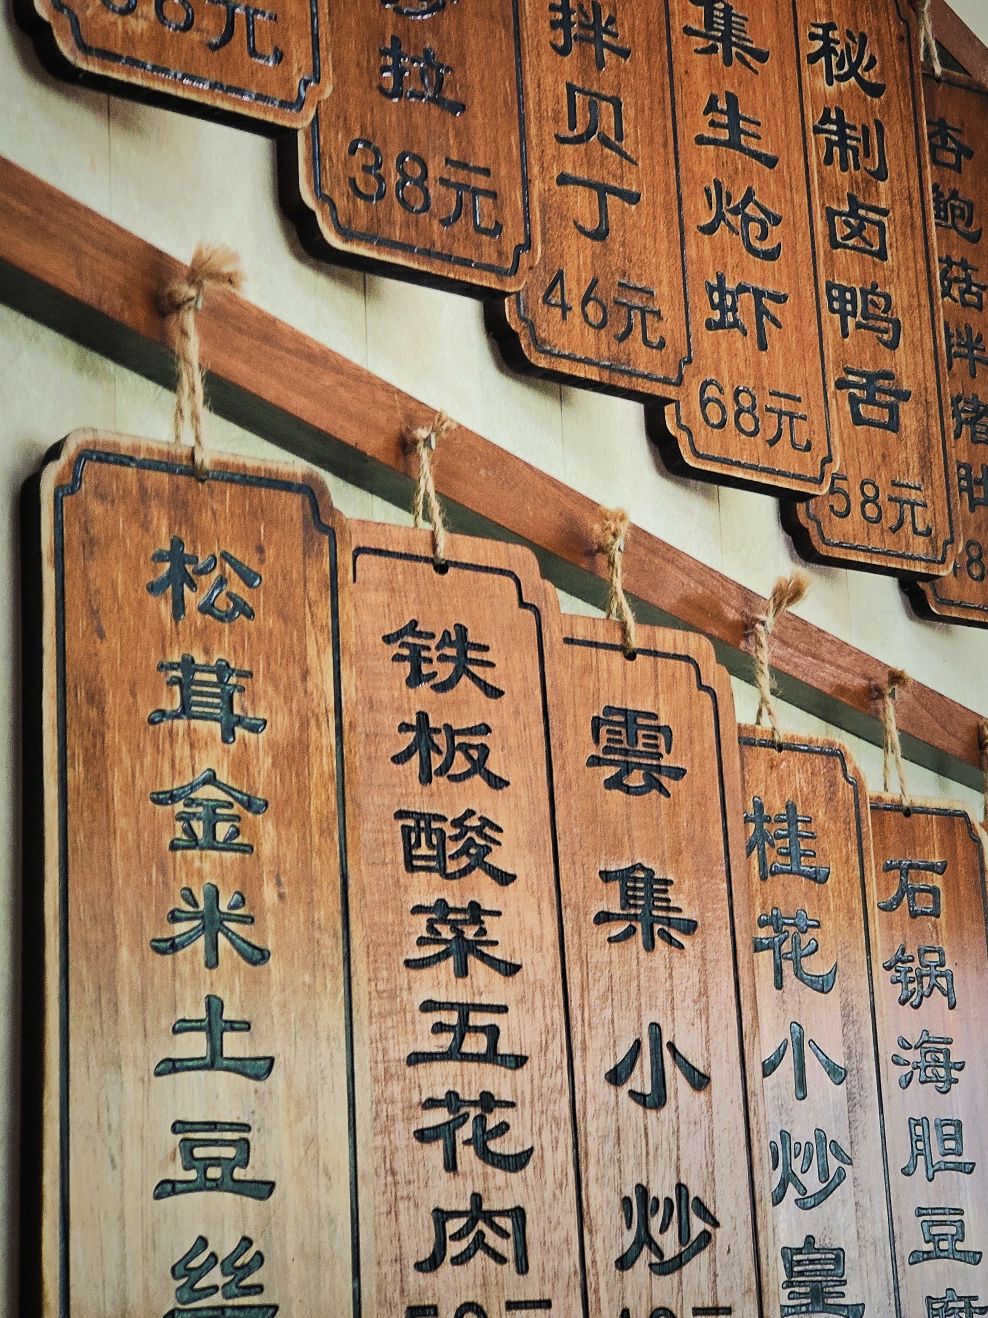 元
拉
38元
拌贝丁
46元
集生炝虾
68元
秘制卤鸭舌
58元
杏鲍菇拌猪肚
松茸金米土豆丝
铁板酸菜五花肉
雲集小炒
桂花小炒皇
石锅海胆豆腐